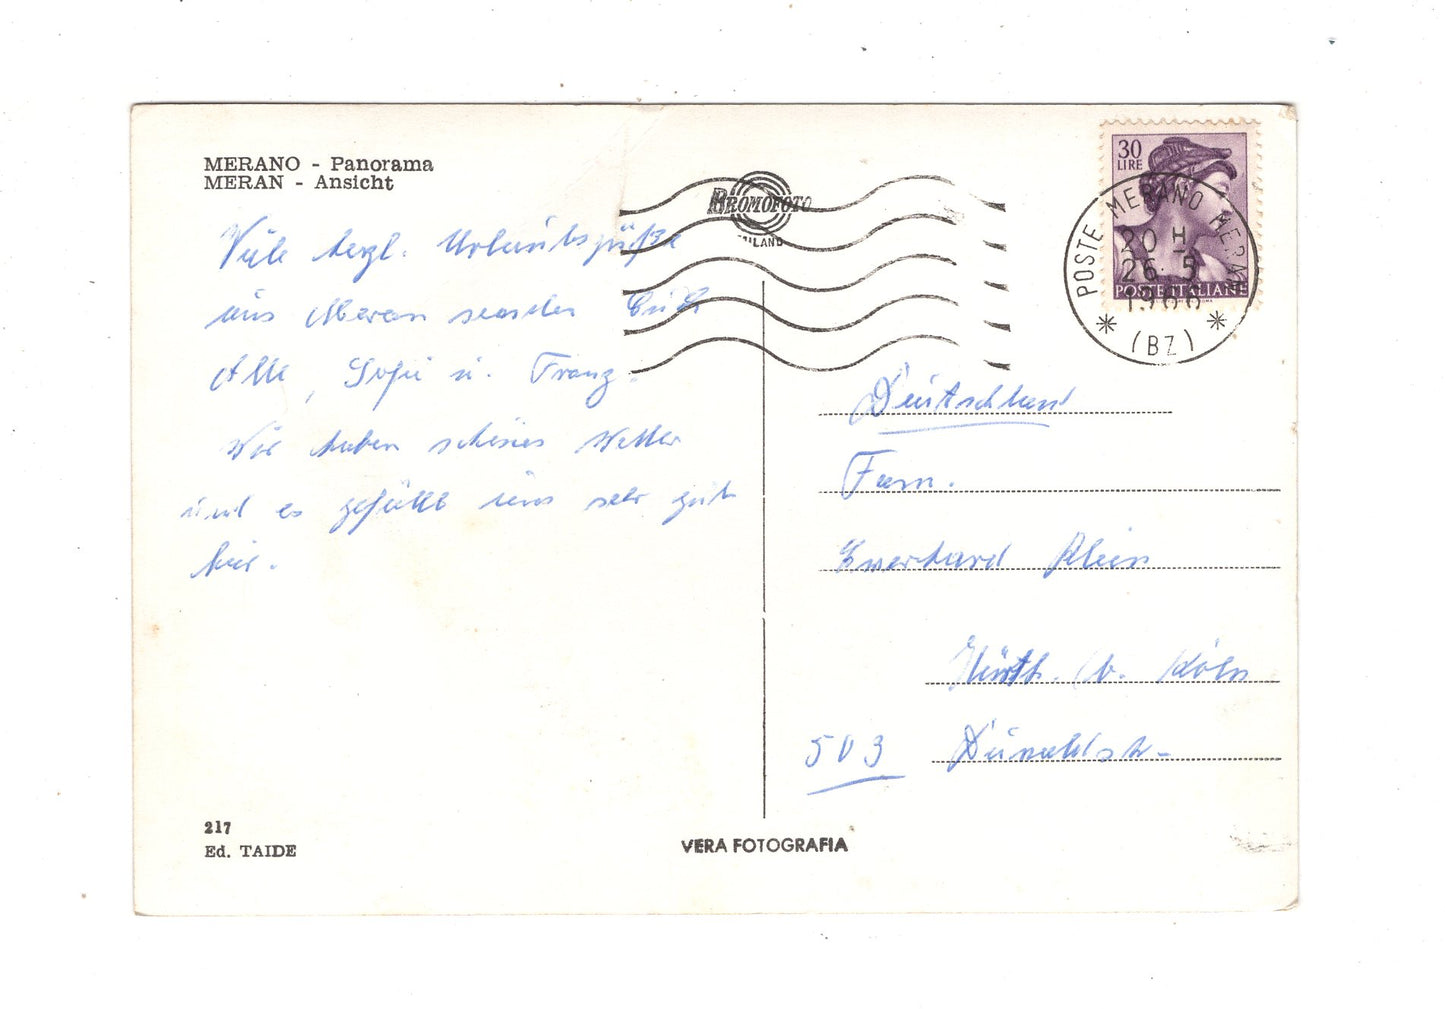 MERANO - Panorama
MERAN - Ansicht
Viele herzl. Urlaubsgrüße
aus Meran senden Euch
Alle, Sofie u. Franz.
Wir haben schönes Wetter
und es gefällt uns sehr gut
hier.
217
Ed. TAIDE
BROMOFOTO
MILANO
VERA FOTOGRAFIA
30
LIRE
POSTE ITALIANE
POSTE MERANO MERAN
20 H
26 5
1966
(BZ)
Deutschland
Fam.
Ewerhard Klein
Hürth. b. Köln
503